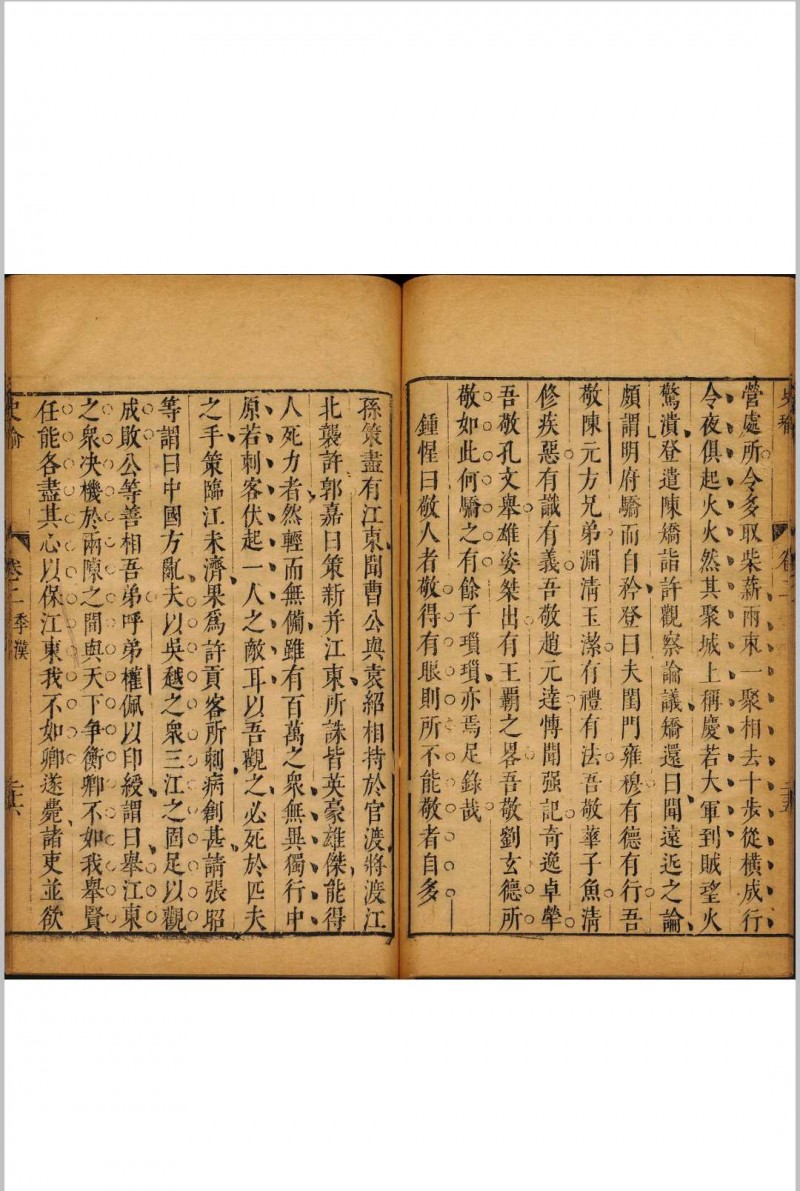 營處所令多取柴薪兩束一聚相去十歩從橫成行
令夜俱起火火然其聚城上稱慶若大軍到賊望火
驚潰登遣陳矯詣許觀察論議矯還曰聞遠近之論
頗謂明府驕而自矜登曰夫閨門雍穆有德有行吾
敬陳元方兄弟淵清玉潔有禮有法吾敬華子魚清
修疾惡有識有義吾敬趙元達慱聞强記奇逸卓犖
吾敬孔文舉雄姿桀出有王霸之畧吾敬劉玄德所
敬如此何驕之有餘子瑣瑣亦焉足錄哉
鍾惺曰敬人者敬得有眼則所不能敬者自多
孫策盡有江東聞曹公與袁紹相持於官渡將渡江
北襲許郭嘉曰策新并江東所誅皆英豪雄傑能得
人死力者然輕而無備雖有百萬之衆無異獨行中
原若刺客伏起一人之敵耳以吾觀之必死於匹夫
之手策臨江未濟果爲許貢客所刺病創甚請張昭
等謂曰中國方亂夫以吳越之衆三江之固足以觀
成敗公等善相吾弟呼弟權佩以印綬謂曰舉江東
之衆决機於兩陳之間與天下争衡卿不如我舉賢
任能各盡其心以保江東我不如卿遂薨諸吏並欲
史
卷二 季漢